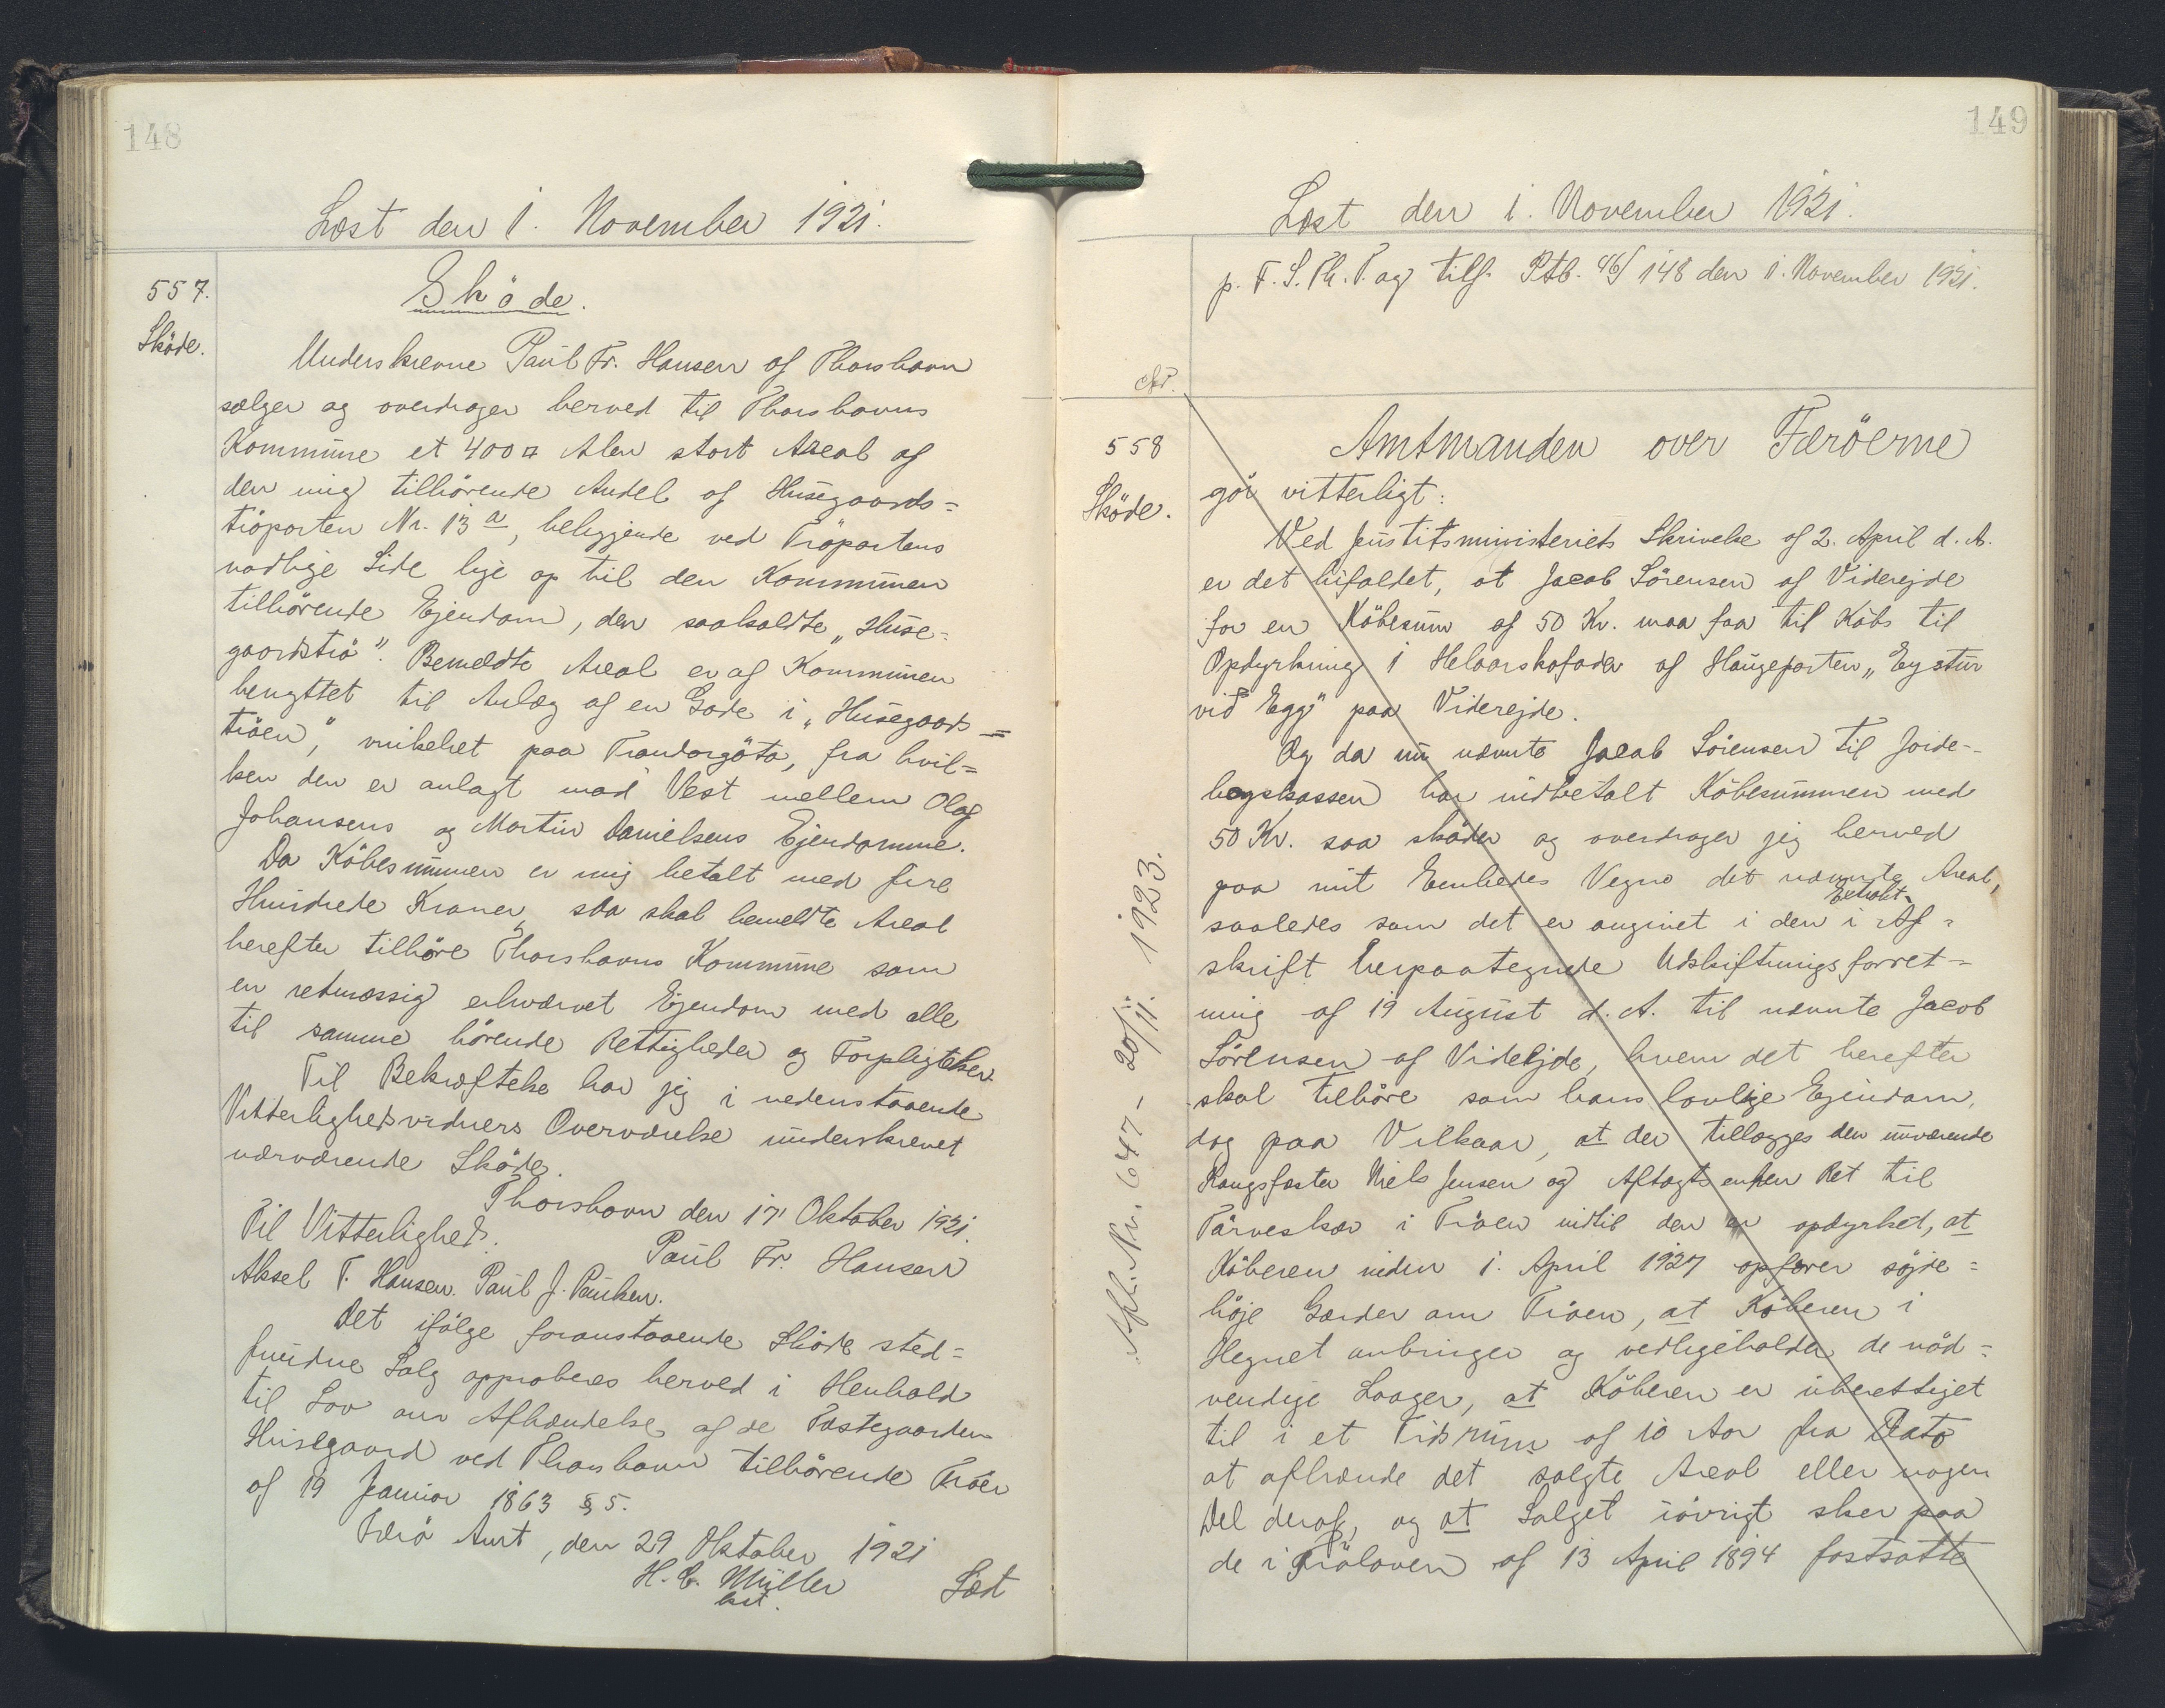 148
Læst den 1. November 1921.
557.
Sköde.
Sköde.
Underskrevne Paul Fr. Hansen af Thorshavn
sælger og overdrager herved til Thorshavns
Kommune et 400 □ Alen stort Areal af
den mig tilhörende Andel af Husegaards=
tröparten Nr. 13 a, beliggende ved Tröpartens
nordlige Side lige op til den Kommunen
tilhörende Ejendom, den saakaldte "Huse-
gaardströ". Bemeldte Areal er af Kommunen
benyttet til Anlæg af en Gade i "Husegaards=
tröen," vinkelret paa Trondargöta, fra hvil=
ken den er anlagt mod Vest mellem Olaf
Johansens og Martin Danielsens Ejendomme.
Da Köbesummen er mig betalt med fire
Hundrede Kroner, saa skal bemeldte Areal
herefter tilhöre Thorshavns Kommune som
en retmæssig erhvervet Ejendom med alle
til samme hörende Rettigheder og Forpligtelser.
Til Bekræftelse har jeg i nedenstaaende
Vitterlighedsvidners Overværelse underskrevet
nærværende Sköde.
Thorshavn den 17 Oktober 1921.
Til Vitterlighed.
Paul Fr. Hansen
Aksel T. Hansen. Paul J. Paulsen.
Det ifölge foranstaaende Sköde sted=
fundne Salg approberes herved i Henhold
til Lov om Afhændelse af de Fæstegaarden
Husegaard ved Thorshavn tilhörende Tröer
af 19 Januar 1863 § 5.
Færö Amt, den 29 Oktober 1921
H. C. Müller
kst.
Læst
149
Læst den 1. November 1921.
p. F. S. Th. T. og tilf. Ptb. 46/148 den 1. November 1921.
558
Sköde.
Amtmanden over Færöerne
gör vitterligt:
Ved Justitsministeriets Skrivelse af 2. April d. A.
er det bifaldet, at Jacob Sörensen af Viderejde
for en Köbesum af 50 Kr. maa faa til Köbs til
Opdyrkning i Helaarskofoder af Haugeparten "Eystur
við Egg" paa Viderejde.
Og da nu nævnte Jacob Sörensen til Jorde-
bogskassen har indbetalt Köbesummen med
50 Kr. saa sköder og overdrager jeg herved
paa mit Embedes Vegne det nævnte Areal,
saaledes som det er angivet i den i Ekstrakt-Af=
skrift herpaategnede Udskiftningsforret=
ning af 19 August d. A. til nævnte Jacob
Sörensen af Viderejde, hvem det herefter
skal tilhöre som hans lovlige Ejendom,
dog paa Vilkaar, at der tillægges den nuværende
Kongsfæster Niels Jensen og Aftægtsenken Ret til
Törveskær i Tröen indtil den er opdyrket, at
Köberen inden 1. April 1927 opförer söjde=
höje Gærder om Tröen, at Köberen i
Hegnet anbringer og vedligeholder de nöd=
vendige Laager, at Köberen er uberettiget
til i et Tidsrum af 10 Aar fra Dato
at afhænde det solgte Areal eller nogen
Del deraf, og at Salget iövrigt sker paa
de i Tröloven af 13 April 1894 fastsatte
Afl. Nr. 647 - 20/11. 1923.